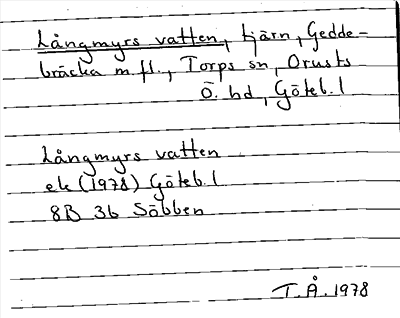 Långmyrs vatten, tjärn, Gedde-
bräcka m.fl., Torps sn, Orusts
Ö. hd, Göteb. l
Långmyrs vatten
ek (1978) Göteb. l
8B 3b Söbben
T.Å. 1978